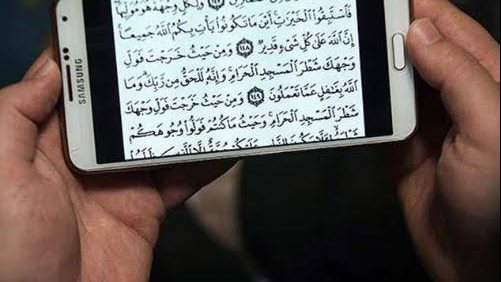 وَلِكُلٍّ وِجْهَةٌ هُوَ مُوَلِّيهَا
فَاسْتَبِقُوا الْخَيْرَاتِ أَيْنَ مَا تَكُونُوا يَأْتِ بِكُمُ اللَّهُ جَمِيعًا
إِنَّ اللَّهَ عَلَى كُلِّ شَيْءٍ قَدِيرٌ ١٤٨ وَمِنْ حَيْثُ خَرَجْتَ فَوَلِّ
وَجْهَكَ شَطْرَ الْمَسْجِدِ الْحَرَامِ وَإِنَّهُ لَلْحَقُّ مِنْ رَبِّكَ وَمَا
اللَّهُ بِغَافِلٍ عَمَّا تَعْمَلُونَ ١٤٩ وَمِنْ حَيْثُ خَرَجْتَ فَوَلِّ وَجْهَكَ
شَطْرَ الْمَسْجِدِ الْحَرَامِ وَحَيْثُ مَا كُنْتُمْ فَوَلُّوا وُجُوهَكُمْ
SAMSUNG